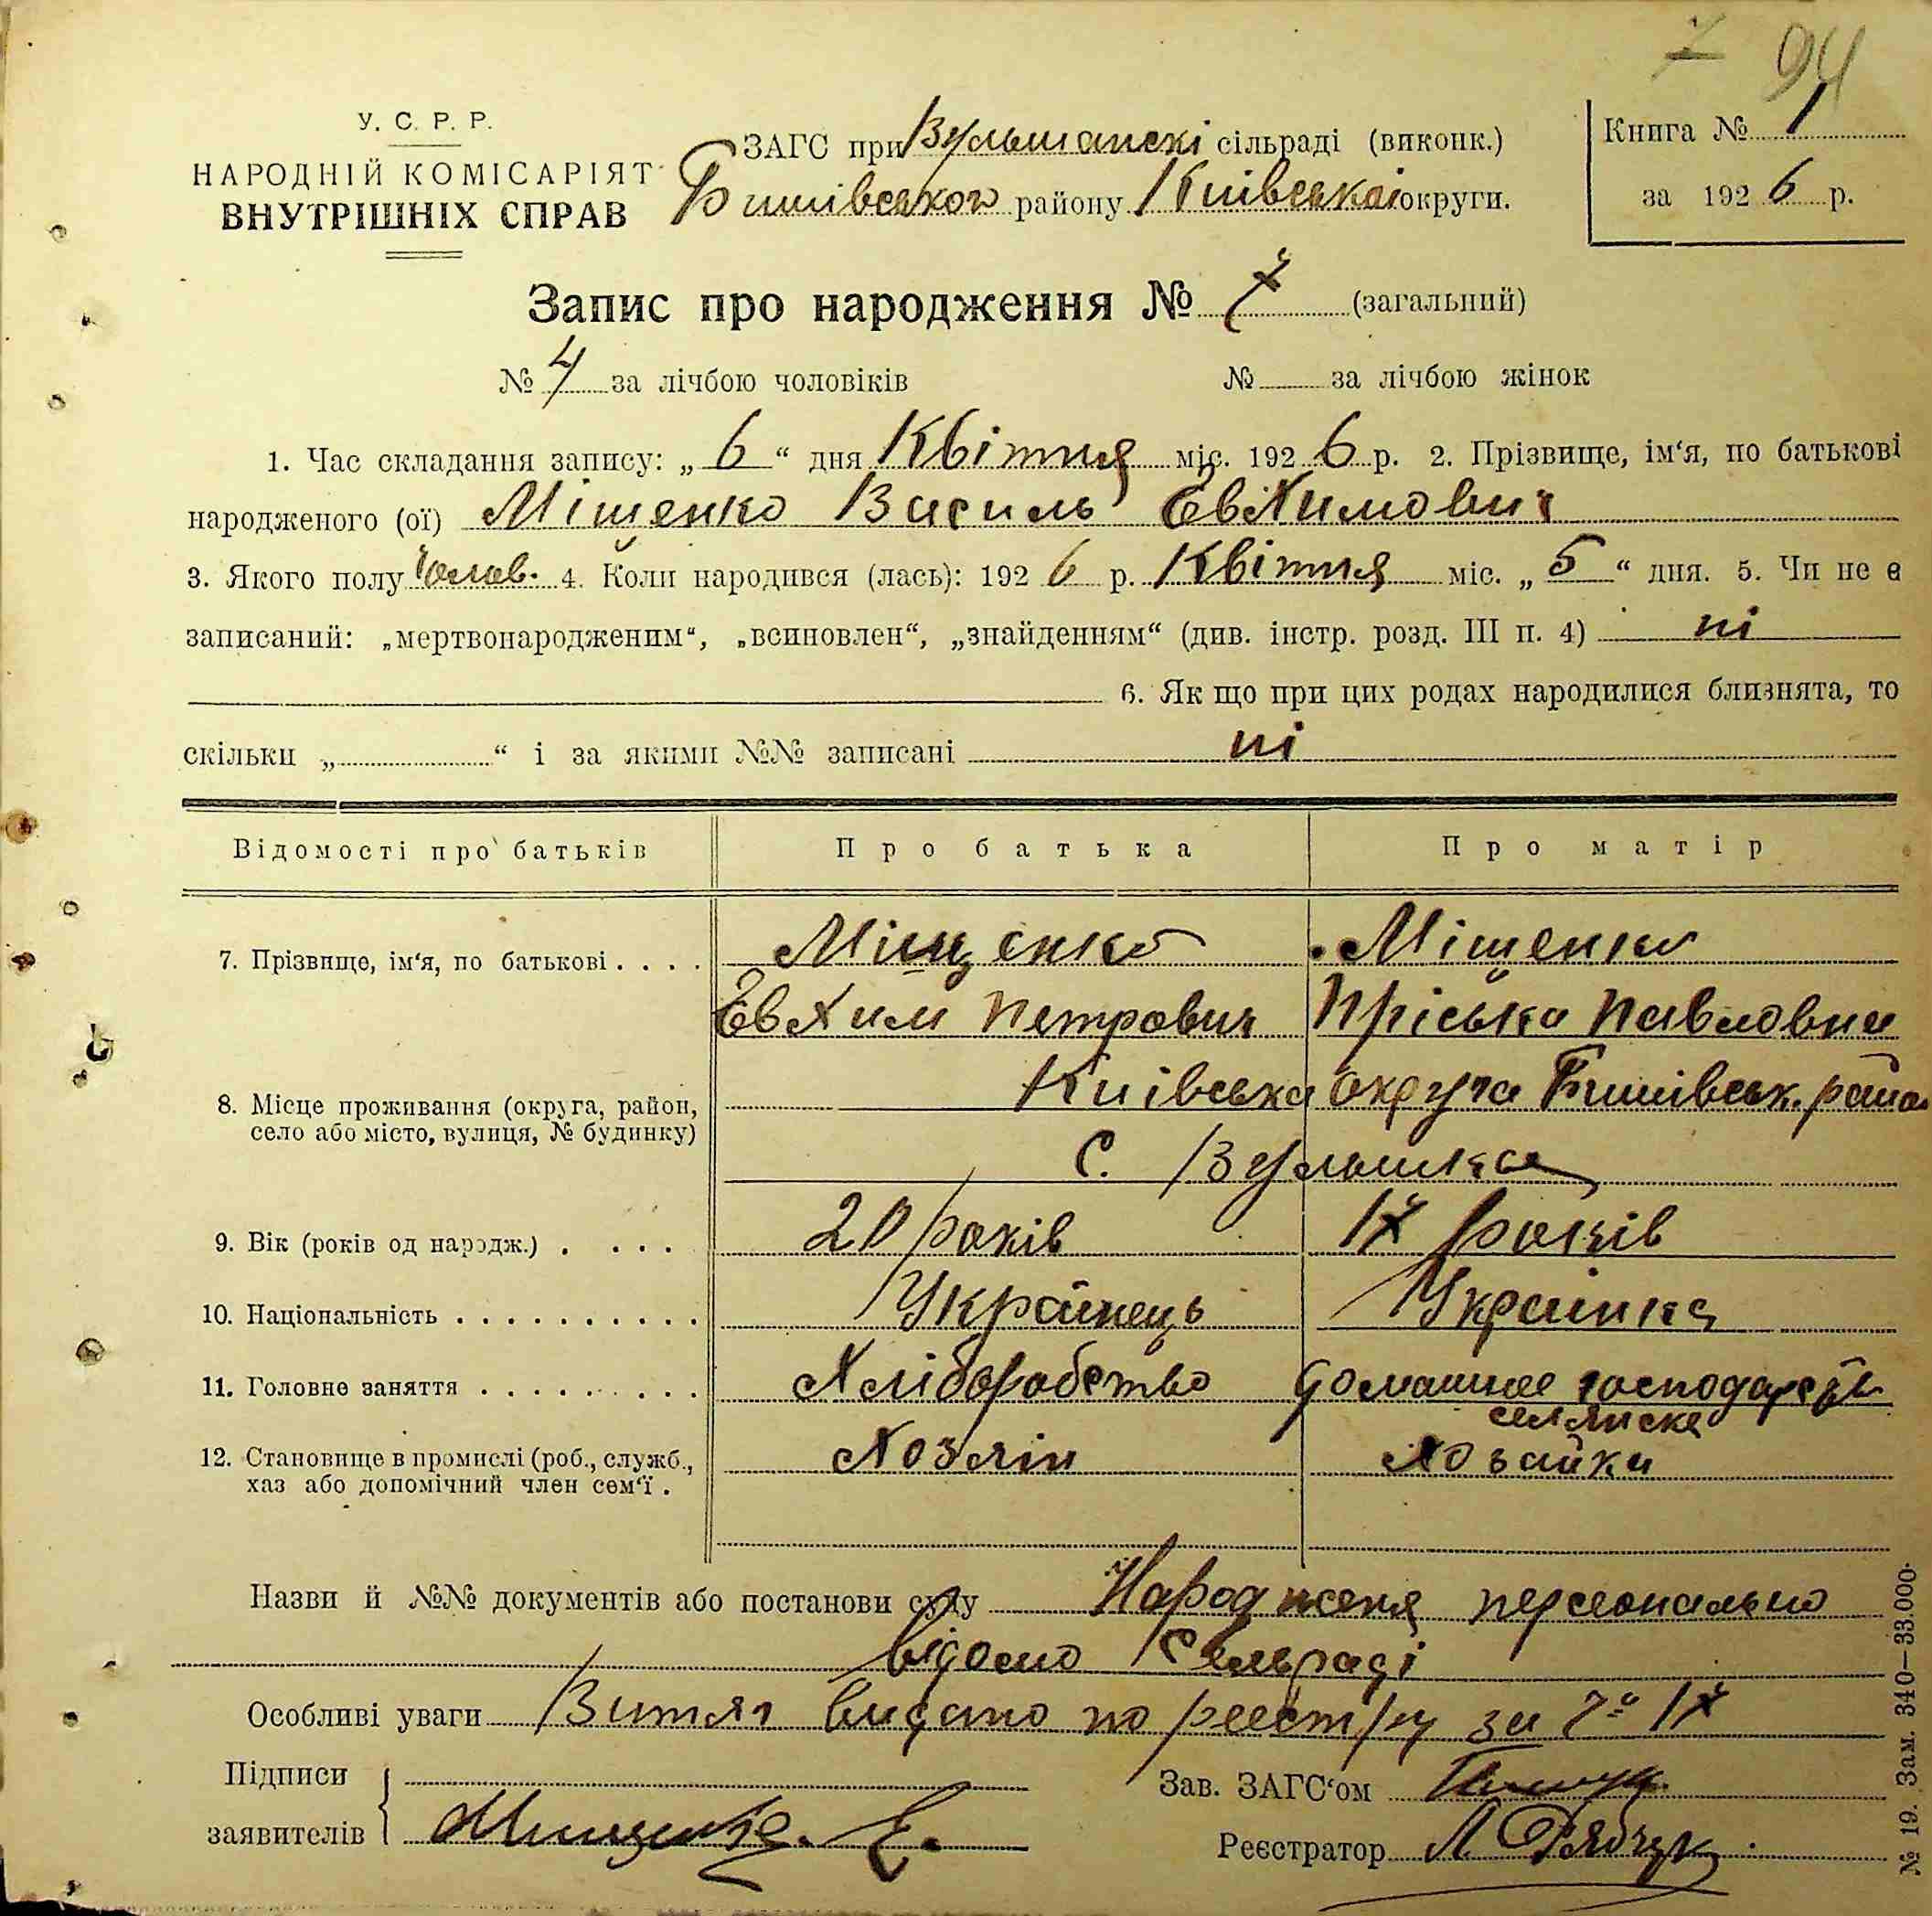 7 94
У. С. Р. Р.
НАРОДНІЙ КОМІСАРІЯТ
ВНУТРІШНІХ СПРАВ
ЗАГС при Вульшанскі сільраді (виконк.)
Бишівського району Київськаі округи.
Книга № 1
за 1926 р.
Запис про народження № 7 (загальний)
№ 4 за лічбою чоловіків № за лічбою жінок
1. Час складання запису: „6“ дня Квітня міс. 1926 р. 2. Прізвище, ім‘я, по батькові
народженого (ої) Міщенко Василь Евхимович
3. Якого полу Чолов. 4. Коли народився (лась): 1926 р. Квітня міс. „5“ дня. 5. Чи не є
записаний: „мертвонародженим“, „всиновлен“, „знайденням“ (див. інстр. розд. III п. 4) ні
6. Як що при цих родах народилися близнята, то
скільки „ “ і за якими №№ записані ні
Відомості про батьків Про батька Про матір
7. Прізвище, ім‘я, по батькові . . . . Міщенко Міщенко
Евхим Петрович Пріська Павловна
8. Місце проживання (округа, район, Київська округа Бишівськ. район
село або місто, вулиця, № будинку)
с. Вульшка
9. Вік (років од народж.) . . . . 20 років 17 років
10. Національність . . . . . . . . . . . Українець Українка
11. Головне заняття . . . . . . . . . . Хліборобство домашнє господарств
селянске
12. Становище в промислі (роб., служб., Хозяін Хозайка
хаз або допомічний член сем‘ї .
Назви й №№ документів або постанови суду Народженя персонально
відомо Сельраді
Особливі уваги Витяг видано по реестру за № 17
Підписи
заявителів Мищенко. Е.
Зав. ЗАГС‘ом
Реєстратор Л Рябчук
№ 19. Зам. 340—33.000.